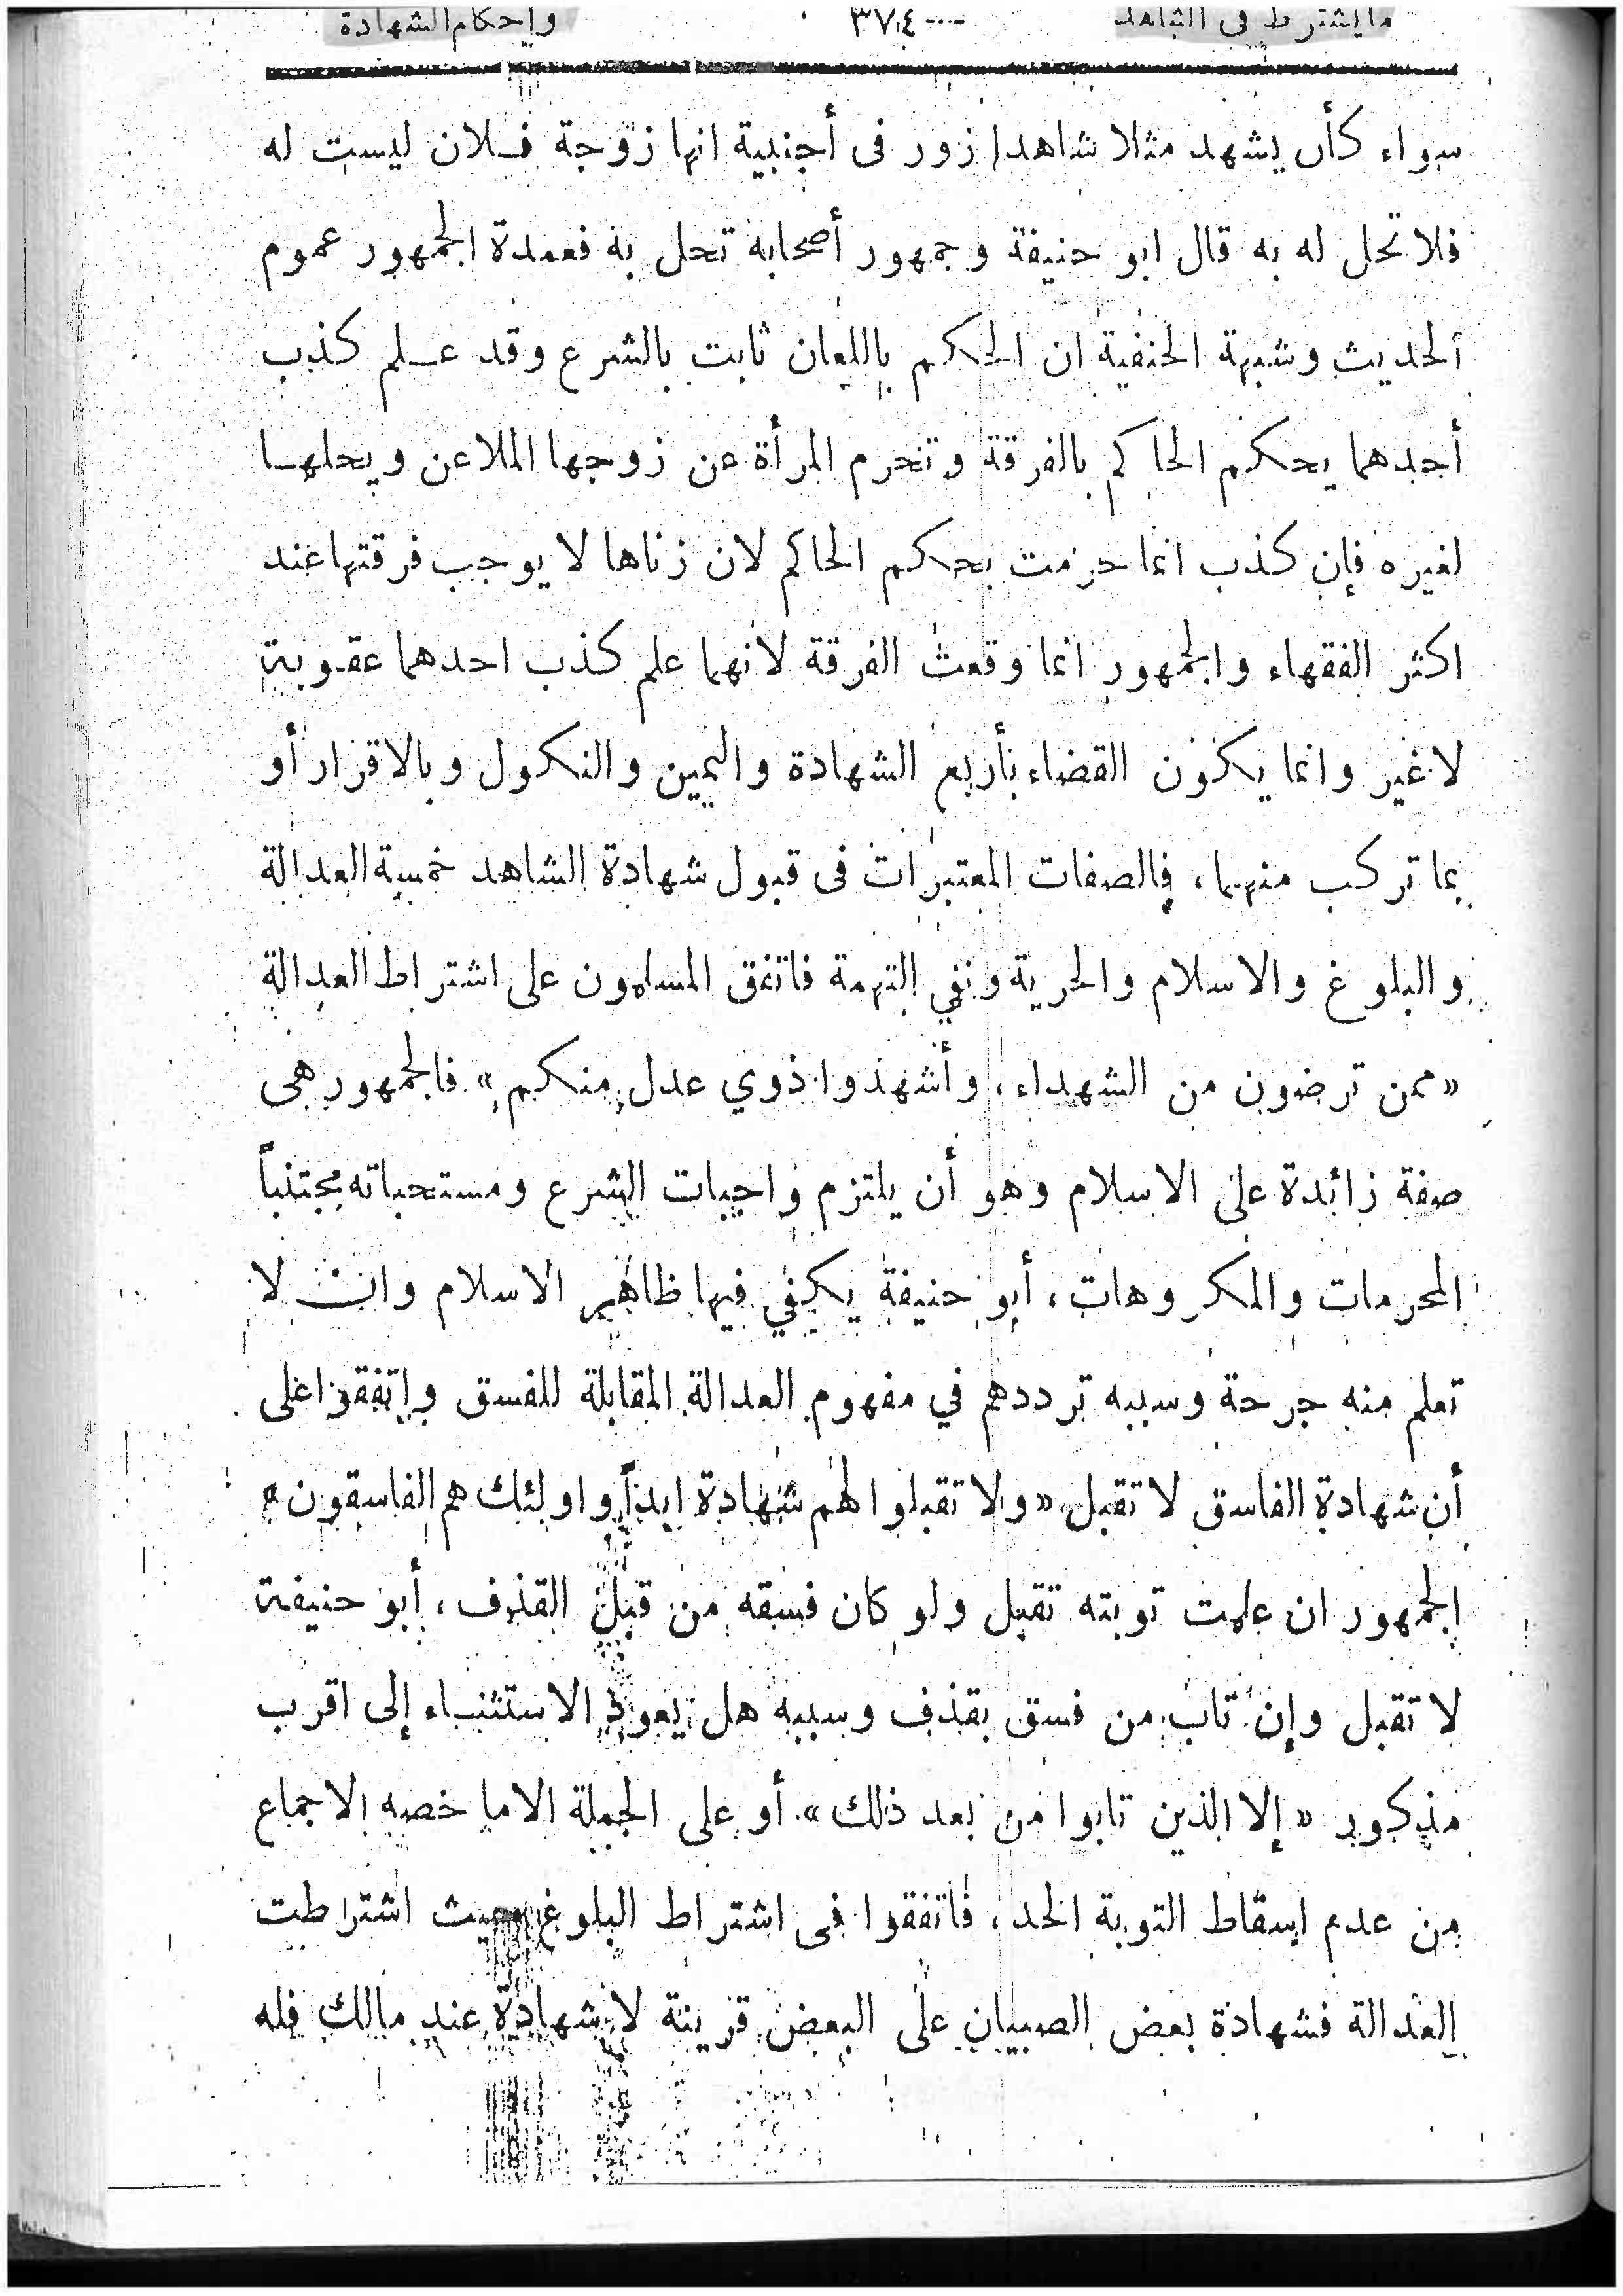 ما يشترط فى الشاهد ٣٧٤ وإحكام الشهادة
سواء كأن يشهد مثلا شاهدا زور فى أجنبية انها زوجة فلان ليست له
فلا تحل له به قال ابو حنيفة وجمهور أصحابه تحل به فعمدة الجمهور عموم
الحديث وشبهة الحنفية ان الحكم باللعان ثابت بالشرع وقد علم كذب
أحدهما يحكم الحاكم بالفرقة وتحرم المرأة عن زوجها الملاعن ويحلها
لغيره فإن كذب انما حرمت بحكم الحاكم لان زناها لا يوجب فرقتها عند
اكثر الفقهاء والجمهور انما وقعت الفرقة لانهما علم كذب احدهما عقوبة
لا غير وانما يكون القضاء بأربع الشهادة واليمين والنكول وبالاقرار أو
بما تركب منهما ، فالصفات المعتبرات فى قبول شهادة الشاهد خمسة العدالة
والبلوغ والاسلام والحرية ونفي التهمة فاتفق المسلمون على اشتراط العدالة
« ممن ترضون من الشهداء ، وأشهدوا ذوي عدل منكم » فالجمهور هى
صفة زائدة على الاسلام وهو أن يلتزم واجبات الشرع ومستحباته مجتنباً
المحرمات والمكروهات ، أبو حنيفة يكفي فيها ظاهر الاسلام وان لا
تعلم منه جرحة وسببه ترددهم في مفهوم العدالة المقابلة للفسق واتفقوا على
أن شهادة الفاسق لا تقبل « ولا تقبلوا لهم شهادة ابداً واولئك هم الفاسقون »
الجمهور ان علمت توبته تقبل ولو كان فسقه من قبل القذف ، أبو حنيفة
لا تقبل وإن تاب من فسق بقذف وسببه هل يعود الاستثناء إلى اقرب
مذكور « إلا الذين تابوا من بعد ذلك » أو على الجملة الا ما خصه الاجماع
من عدم اسقاط التوبة الحد ، فاتفقوا فى اشتراط البلوغ حيث اشترطت
العدالة فشهادة بعض الصبيان على البعض قرينة لا شهادة عند مالك فله